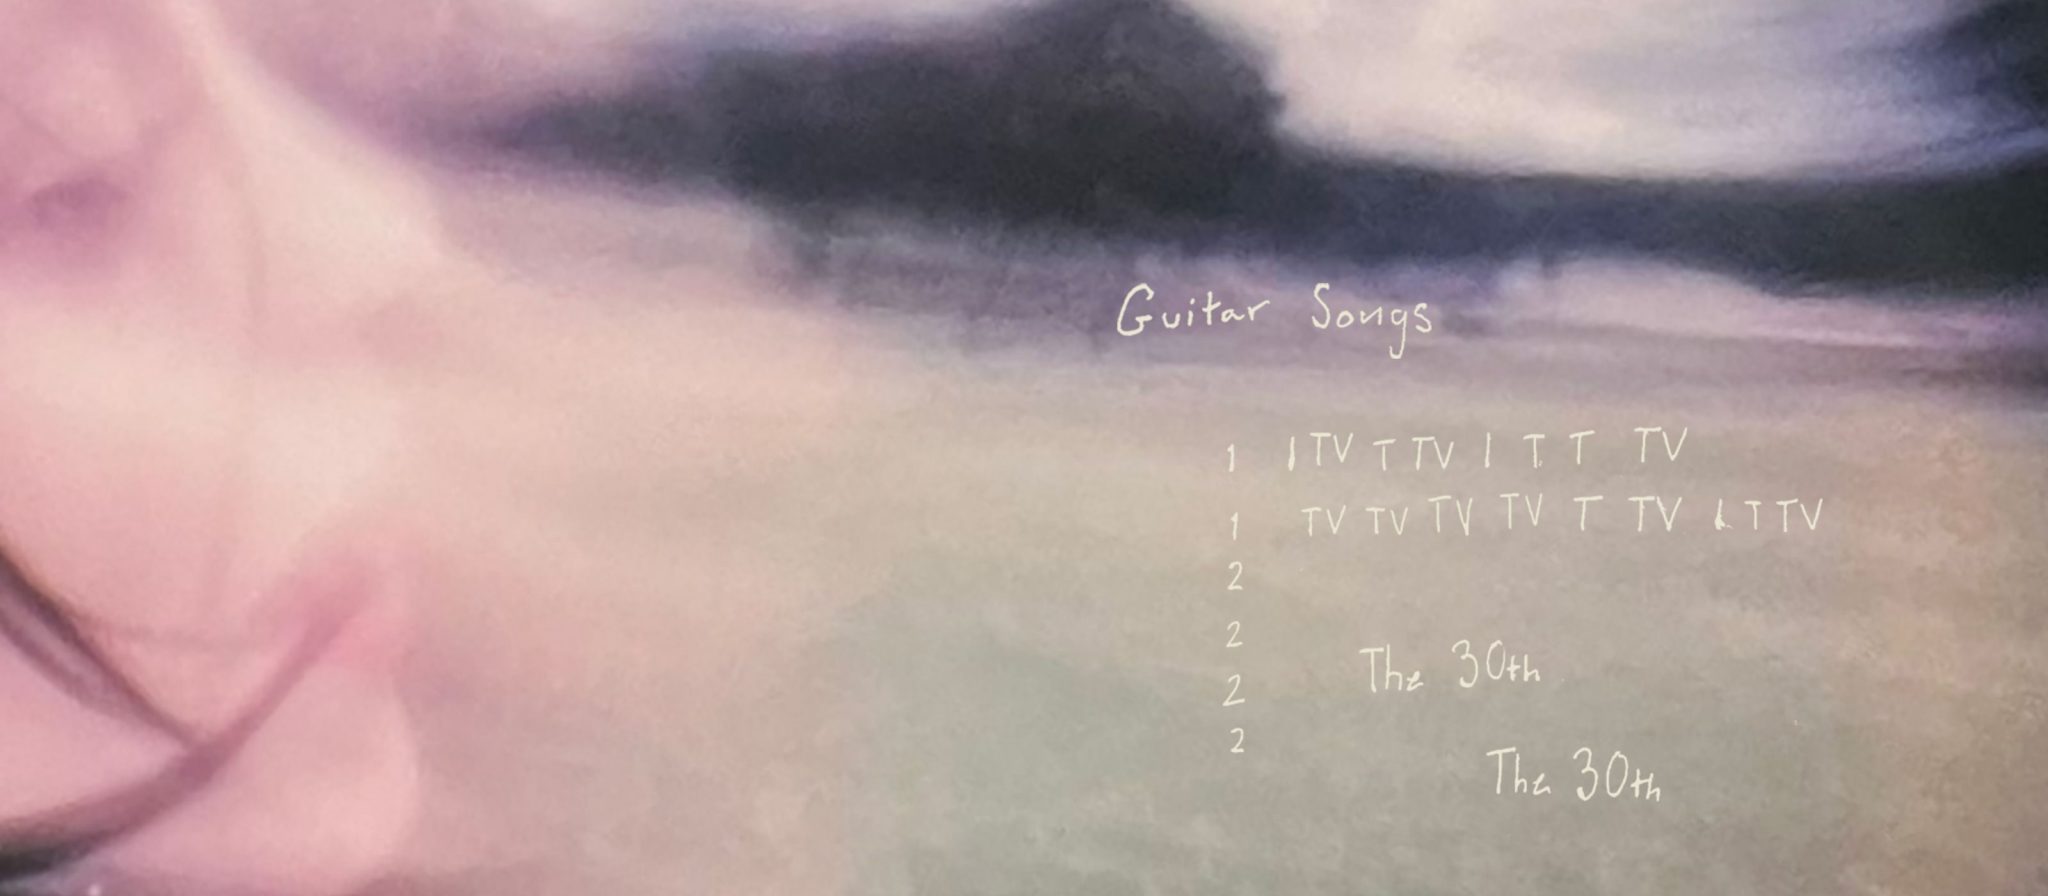 Guitar Songs
1 I TV T TV I T T TV
1 TV TV TV TV T TV I T TV
2
2
The 30th
2
2
The 30th